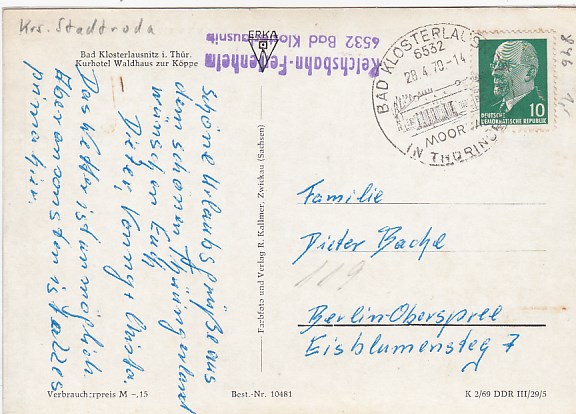 Krs. Stadtroda
Bad Klosterlausnitz i. Thür.
Kurhotel Waldhaus zur Köppe
ERKA
Reichsbahn-Ferienheim
6532 Bad Klosterlausnitz
BAD KLOSTERLAUSNITZ
6532
28.4.70-14
MOOR
IN THÜRINGEN
10
DEUTSCHE
DEMOKRATISCHE REPUBLIK
Schöne Urlaubsgrüße aus
dem schönen Thüringerland
wünschen Euch
Dieter, Conny + Christa.
Das Wetter ist unmöglich
Aber ansonsten ist alles
prima hier.
Farbfoto und Verlag R. Kallmer, Zwickau (Sachsen)
Familie
Dieter Bache
119
Berlin-Oberspree
Eisblumensteg 7
Verbraucherpreis M -,15
Best.-Nr. 10481
K 2/69 DDR III/29/5